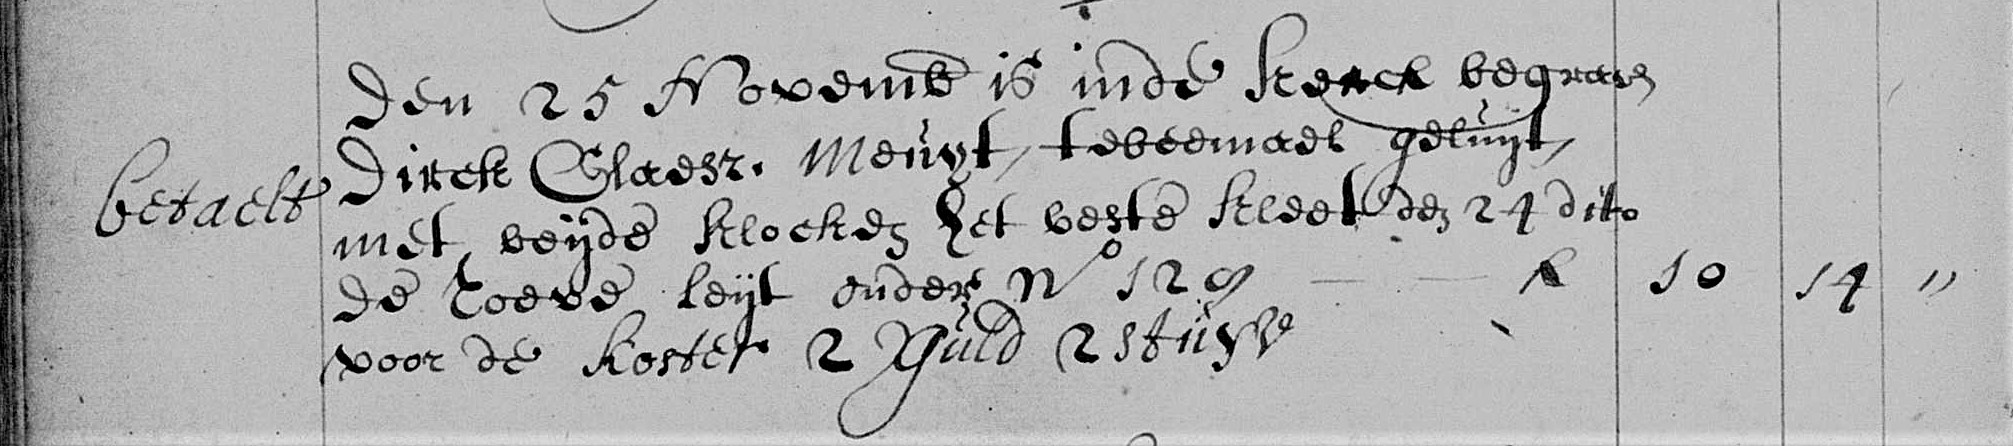 Den 25 Novemb is inde kerck begraven
betaelt Dirck Claesz. Meuyt, tweemael geluyt,
met beyde klocken het beste kleet den 24 dito
de roeve leyt onder No 129 — — f 10 14 "
voor de koster 2 guld 2 stuyv